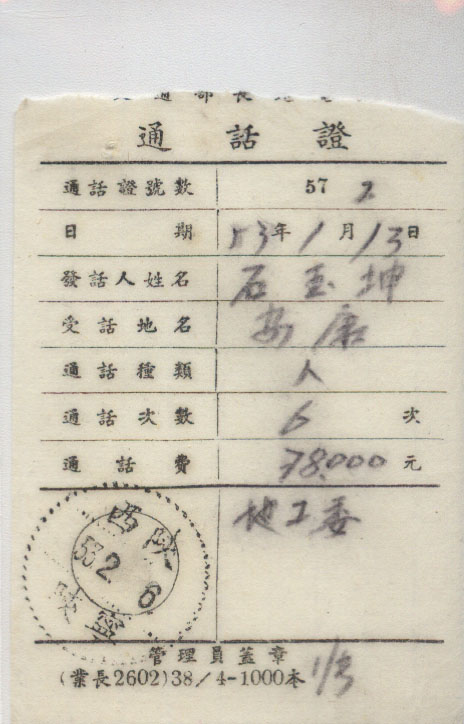 部長
通話證
通話證號數 57 2
日期 53年1月13日
發話人姓名 石玉坤
受話地名 安康
通話種類 人
通話次數 6次
通話費 78,000元
地工委
陝西
53 2 6
寧陝
管理員蓋章
(業長2602)38/4-1000本